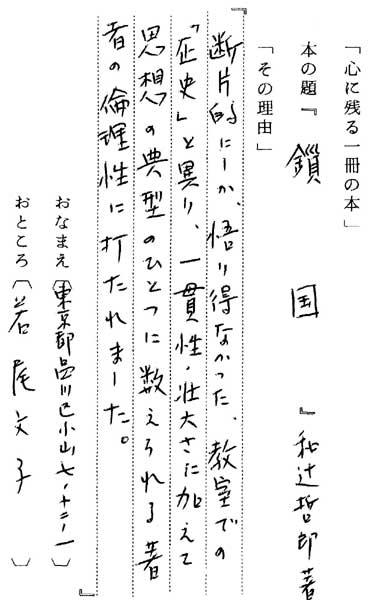 「心に残る一冊の本」
本の題『 鎖国 』 和辻哲郎著
「その理由」
『断片的にしか、悟り得なかった、教室での
「正史」と異り、一貫性・壮大さに加えて
思想の典型のひとつに数えられる著
者の倫理性に打たれました。』
おなまえ〔東京都品川区小山七ー十二ー一〕
おところ〔若尾文子〕